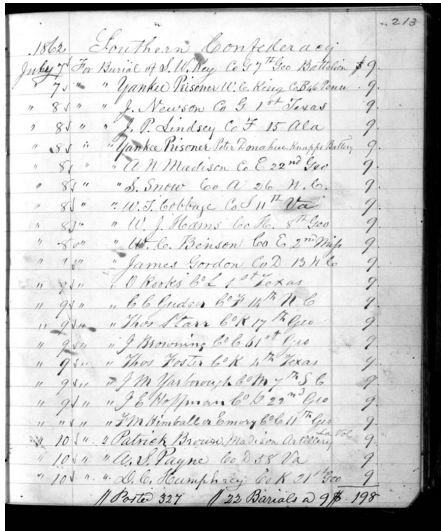 213
1862 Southern Confederacy
July 7 For Burial of S. W. Key Co G 7th Geo Battalion $9.
" 7 " " Yankee Prisoner W. C. King Co B Penn 9.
" 8 " " J. Newson Co G 1st Texas 9.
" 8 " " J. P. Lindsey Co F 15 Ala 9.
" 8 " " Yankee Prisoner Peter Donahue Knapps Battery 9.
" 8 " " A N Madison Co E 22nd Geo 9.
" 8 " " S. Snow Co A 26 N. C. 9.
" 8 " " W. T. Cobbage Co I 11st Va 9.
" 8 " " W. J. Hams Co K. 8th Geo 9.
" 8 " " Wm. C. Benson Co E 2nd Miss 9.
" " " James Gordon Co D 13 N C 9.
" " " O Rooks Co L 1st Texas 9.
" 9 " " C C Co F 14th N C 9.
" 9 " " Thos Starr Co K 17th Geo 9.
" 9 " " J Browning Co C 61st Geo 9.
" 9 " " Thos Foster Co K 4th Texas 9.
" 9 " " J M Yarborough Co M 7th S C 9.
" 9 " " J C Hoffman Co 22nd Geo 9.
" " " " F M Kimball or Emory Co C 11th Geo 9.
" 10 " " Patrick Brown Madison Artillery La Vol 9.
" 10 " " W. S. Payne Co D 58 Va 9.
" 10 " " D. C. Humphrey Co K 21st Geo 9
// Posted 327 // 22 Burials a 9$ 198